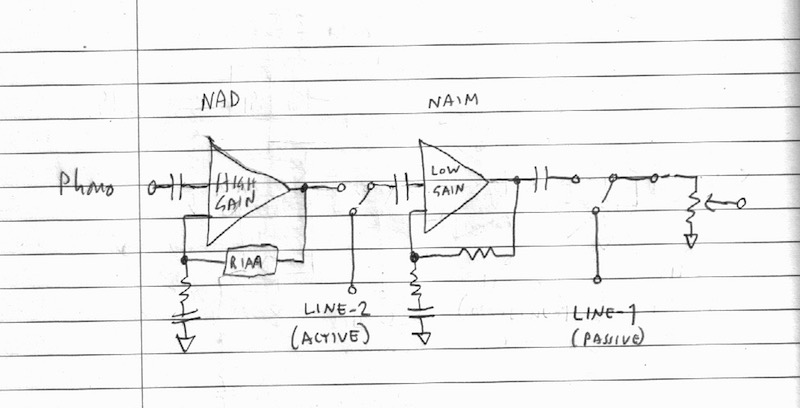 NAD
NAIM
Phono
HIGH
GAIN
LOW
GAIN
RIAA
LINE-2
(ACTIVE)
LINE-1
(PASSIVE)